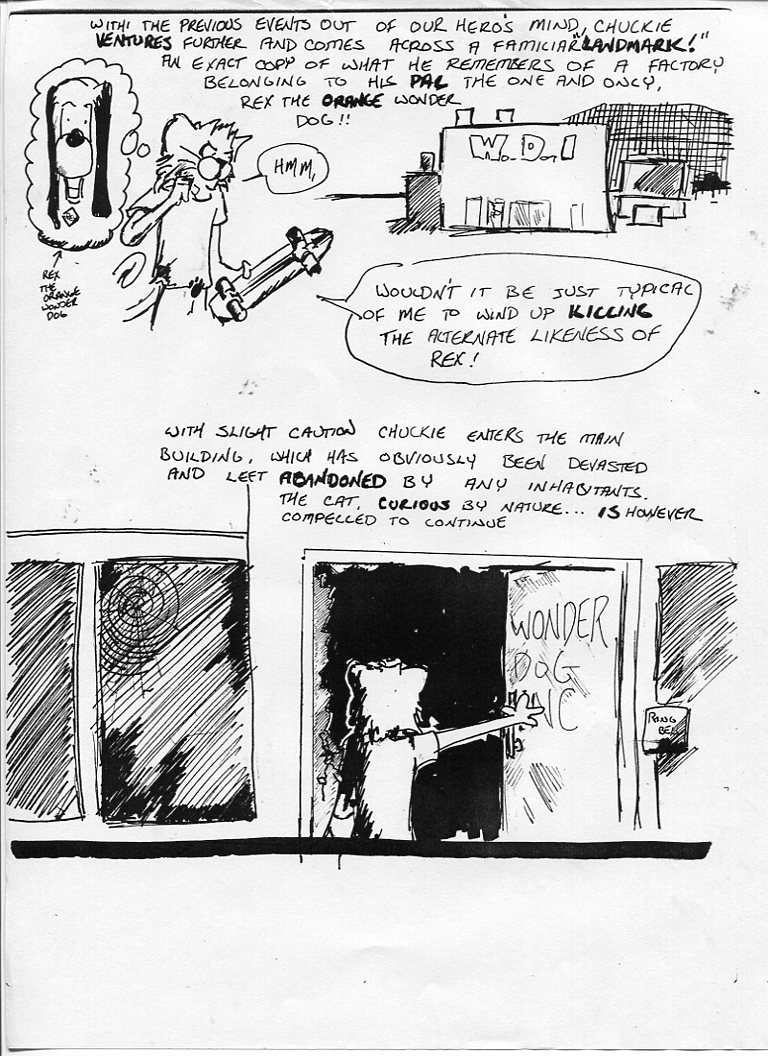 WITH THE PREVIOUS EVENTS OUT OF OUR HERO'S MIND, CHUCKIE
VENTURES FURTHER AND COMES ACROSS A FAMICIAR "LANDMARK!"
AN EXACT COPY OF WHAT HE REMEMBERS OF A FACTORY
BELONGING TO HIS PAL THE ONE AND ONLY,
REX THE ORANGE WONDER
DOG!!
HMM,
W.D.I
REX
THE
ORANGE
WONDER
DOG
WOULDN'T IT BE JUST TYPICAL
OF ME TO WIND UP KILLING
THE ALTERNATE LIKENESS OF
REX!
WITH SLIGHT CAUTION CHUCKIE ENTERS THE MAIN
BUILDING, WHICH HAS OBVIOUSLY BEEN DEVASTED
AND LEFT ABANDONED BY ANY INHABITANTS.
THE CAT, CURIOUS BY NATURE... IS HOWEVER
COMPELLED TO CONTINUE
WONDER
DOG
INC
RING
BELL